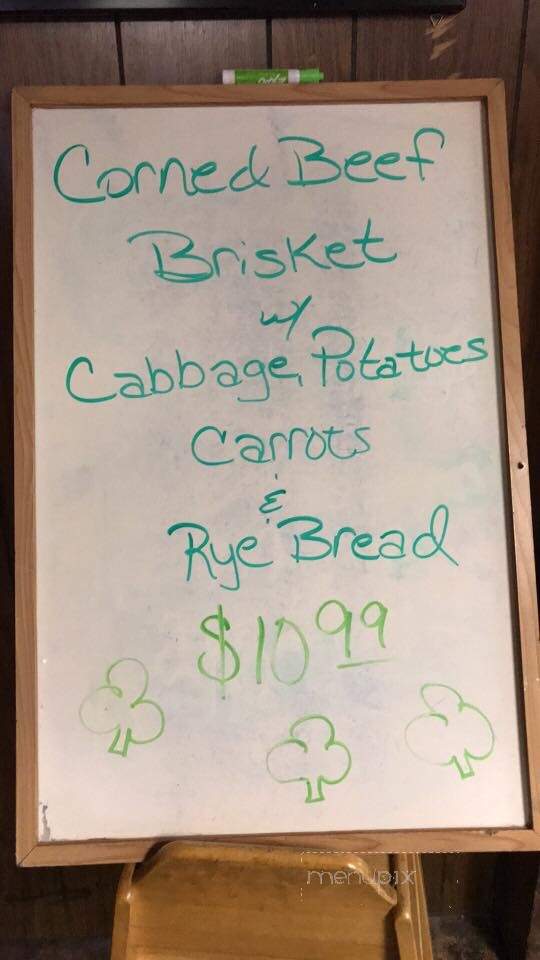 Corned Beef
Brisket
w/
Cabbage, Potatoes
Carrots
&
Rye Bread
$10.99
menupix